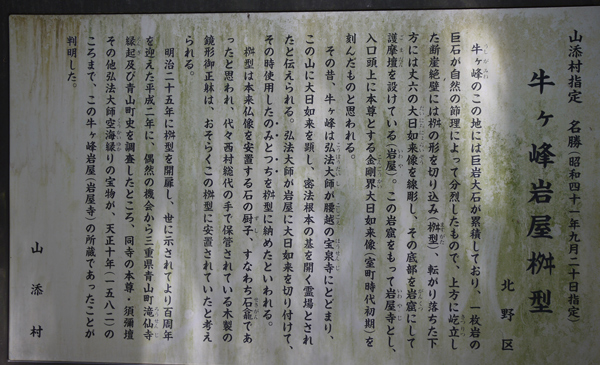 山添村指定 名勝(昭和四十一年九月二十日指定)
牛ヶ峰岩屋桝型
北野区
牛ヶ峰のこの地には巨岩大石が累積しており、一枚岩の
巨石が自然の節理によって分烈したもので、上方に屹立し
た断崖絶壁には桝の形を切り込み(桝型)、転がり落ちた下
方には丈六の大日如来像を線彫し、その底部を岩窟にして
護摩壇を設けている(岩屋)。この岩窟をもって岩屋寺とし、
入口頭上に本尊とする金剛界大日如来像(室町時代初期)を
刻んだものと思われる。
その昔、牛ヶ峰は弘法大師が腰越の宝泉寺にとどまり、
この山に大日如来を顕し、密法根本の基を開く霊場とされ
たと伝えられる。弘法大師が岩屋に大日如来を切り付けて、
その時使用したのみとつちを桝型に納めたといわれる。
桝型は本来仏像を安置する石の厨子、すなわち石龕であ
ったと思われ、代々西村総代の手で保管されている木製の
鏡形御正躰は、おそらくこの桝型に安置されていたと考え
られる。
明治二十五年に桝型を開扉し、世に示されてより百周年
を迎えた平成二年に、偶然の機会から三重県青山町滝仙寺
縁起及び青山町史を調査したところ、同寺の本尊・須弥壇
その他弘法大師空海縁りの宝物が、天正十年(一五八二)の
ころまで、この牛ヶ峰岩屋(岩屋寺)の所蔵であったことが
判明した。
山添村